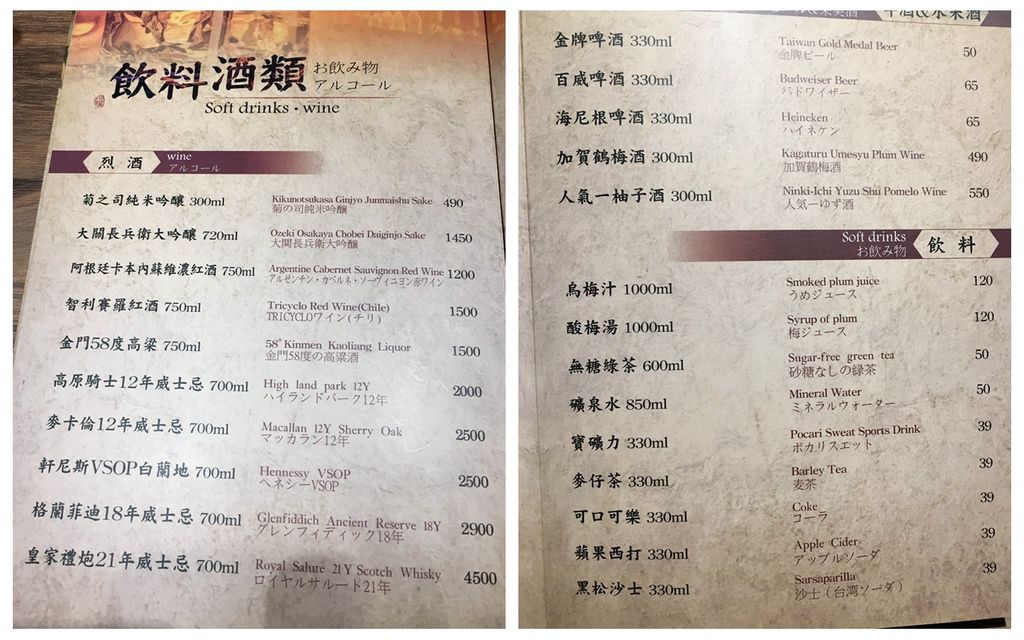 飲料酒類
お飲み物
アルコール
Soft drinks・wine
烈酒
wine
アルコール
菊之司純米吟釀 300ml
Kikunotsukasa Ginjyo Junmaishu Sake
菊の司純米吟醸
490
大關長兵衛大吟釀 720ml
Ozeki Osakaya Chobei Daiginjo Sake
大関長兵衛大吟醸
1450
阿根廷卡本內蘇維濃紅酒 750ml
Argentine Cabernet Sauvignon Red Wine
アルゼンチン・カベルネ・ソーヴィニヨン赤ワイン
1200
智利賽羅紅酒 750ml
Tricyclo Red Wine(Chile)
TRICYCLOワイン(チリ)
1500
金門58度高粱 750ml
58° Kinmen Kaoliang Liquor
金門58度の高粱酒
1500
高原騎士12年威士忌 700ml
High land park 12Y
ハイランドパーク12年
2000
麥卡倫12年威士忌 700ml
Macallan 12Y Sherry Oak
マッカラン12年
2500
軒尼斯VSOP白蘭地 700ml
Hennessy VSOP
ヘネシーVSOP
2500
格蘭菲迪18年威士忌 700ml
Glenfiddich Ancient Reserve 18Y
グレンフィディック18年
2900
皇家禮炮21年威士忌 700ml
Royal Salute 21Y Scotch Whisky
ロイヤルサルート21年
4500
金牌啤酒 330ml
Taiwan Gold Medal Beer
金牌ビール
50
百威啤酒 330ml
Budweiser Beer
バドワイザー
65
海尼根啤酒 330ml
Heineken
ハイネケン
65
加賀鶴梅酒 300ml
Kagaturu Umesyu Plum Wine
加賀鶴梅酒
490
人氣一柚子酒 300ml
Ninki-Ichi Yuzu Shu Pomelo Wine
人気一ゆず酒
550
Soft drinks
お飲み物
飲料
烏梅汁 1000ml
Smoked plum juice
うめジュース
120
酸梅湯 1000ml
Syrup of plum
梅ジュース
120
無糖綠茶 600ml
Sugar-free green tea
砂糖なしの緑茶
50
礦泉水 850ml
Mineral Water
ミネラルウォーター
50
寶礦力 330ml
Pocari Sweat Sports Drink
ポカリスエット
39
麥仔茶 330ml
Barley Tea
麦茶
39
可口可樂 330ml
Coke
コーラ
39
蘋果西打 330ml
Apple Cider
アップルソーダ
39
黑松沙士 330ml
Sarsaparilla
沙士（台湾ソーダ）
39